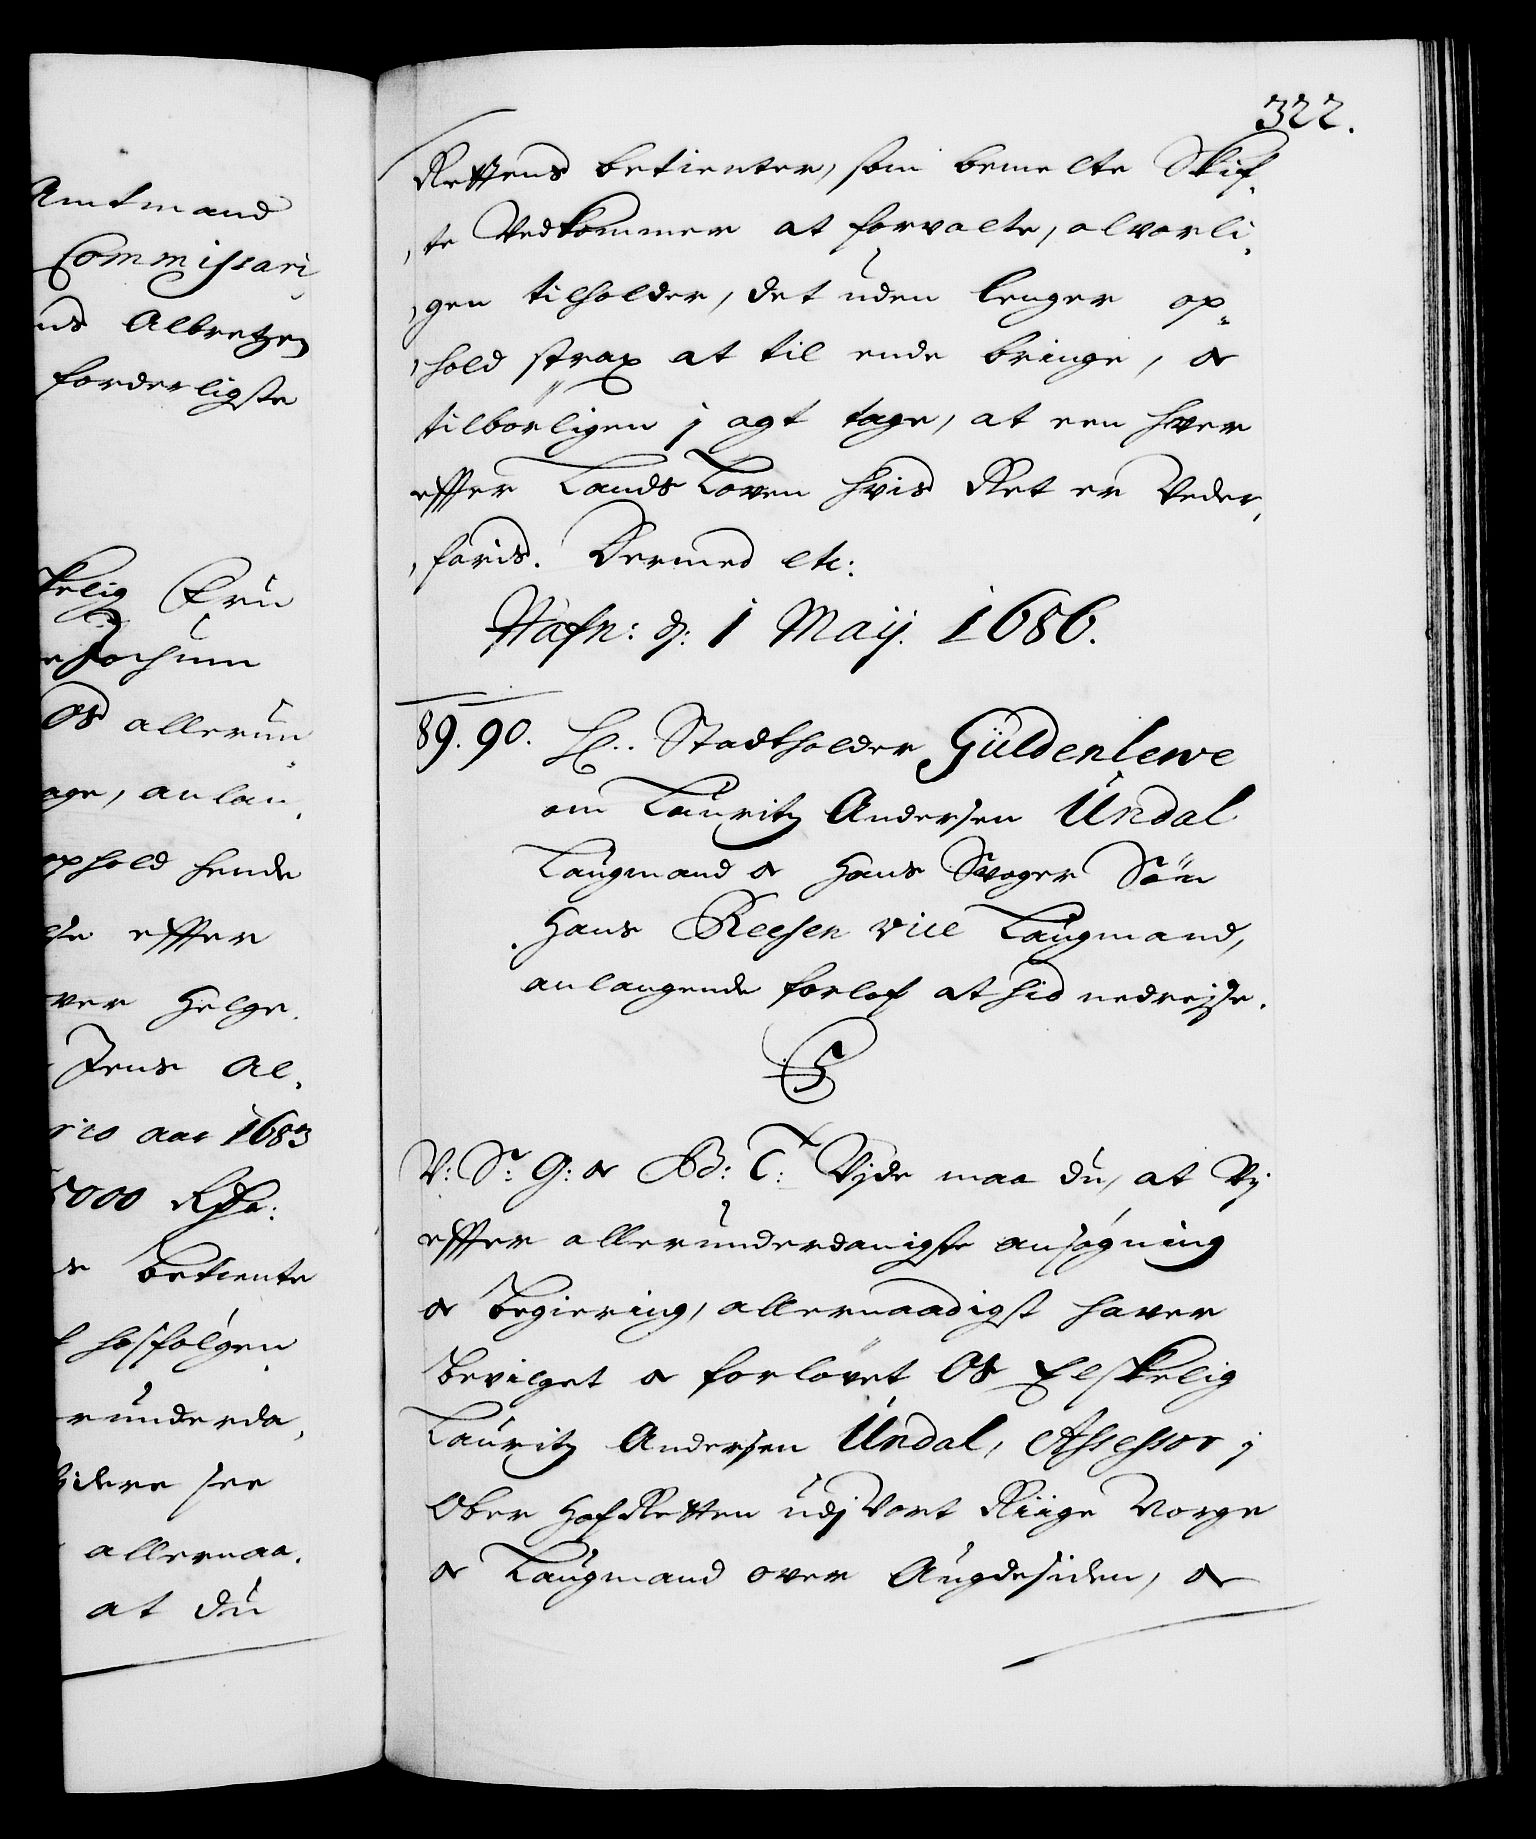 Amtmand
Commissari
us Albretzen
forderligste
kelig Fru
Jochum
Os allerun
age, anlan,
ophold hende
effter
over Helge,
Jens Al,
aar 1683
5000 Rdr:
betiente
hosfølgen
runderda,
videre see
allernaa,
at du
322.
Rettens betienter, som bemelte Skif,
,te Vedkommer at forvalte, alvorli,
,gen tilholder, det uden lenger op,
,hold strax at til ende bringe, och
tilbørligen j agt tage, at een hver
effter Lands Loven hvis Ret er Veder,
,faris. Dermed etc:
Hafn: d: 1 Maij. 1686.
89. 90. H: Stadtholder Güldenlewe
om Lauritz Andersen Undal
Laugmand och Hans Svoger Søn
Hans Reesen vice Laugmand,
anlangende forlof at hid nedrejse.
C5
V: S: G: och B: T: Vjde maa du, at Vj
effter allerunderdanigste ansøgning
och Begiering, allernaadigst haver
Bevilget och forlovet Os Elskelig
Lauritz Andersen Undal, Assessor j
Ober Hof Retten udj Vort Riige Norge
och Laugmand over Augdesiden, och